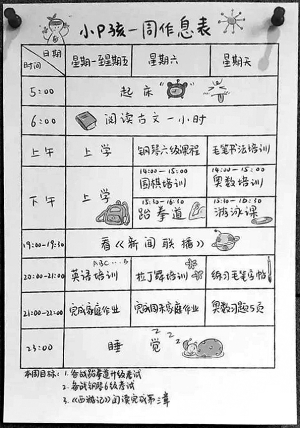 小P孩一周作息表
日期
时间
星期一至星期五 星期六 星期天
5:00 起床
6:00 阅读古文一小时
上午 上学 钢琴六级课程 毛笔书法培训
下午 上学
14:00-15:00 围棋培训
14:00-15:00 奥数培训
15:10-16:10 跆拳道
15:10-16:30 游泳课
19:00-19:30 看《新闻联播》
ABC...
20:00-21:00 英语培训 拉丁舞培训 练习毛笔字帖
21:00-22:00 完成家庭作业 完成周末家庭作业 奥数习题5页
23:00 睡觉
zzz
本周目标: 1. 备战跆拳道升级考试
2. 备战钢琴6级考试
3. 《西游记》阅读完成第三章